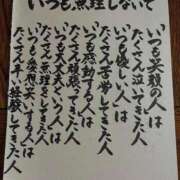 いつも無理しないで
いつも笑顔の人は
たくさん泣いてきた人
いつも優しい人は
たくさん苦労してきた人
いつも感動する人は
たくさん頑張ってきた人
いつも大丈夫
人は
たくさん
してきた人
いつも愛想笑いする人は
たくさん辛い経験してきた人